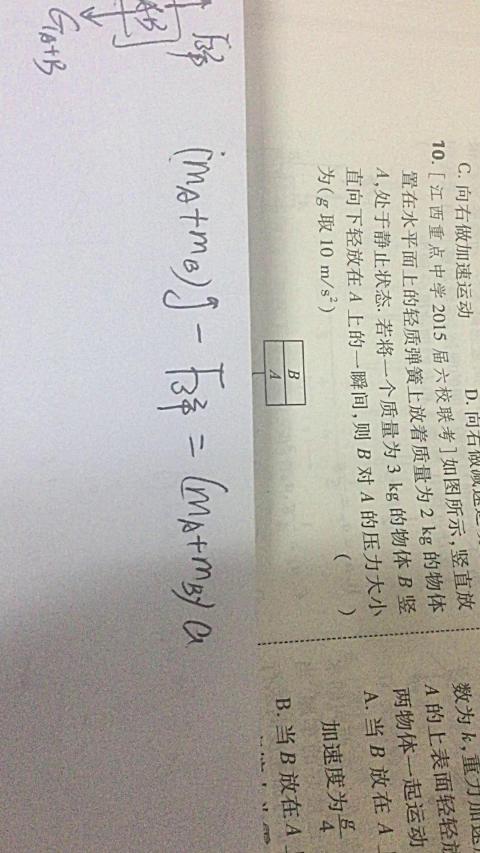 C. 向右做加速运动
D. 向右做减速运
10. [江西重点中学2015届六校联考]如图所示,竖直放
置在水平面上的轻质弹簧上放着质量为2 kg的物体
A,处于静止状态. 若将一个质量为3 kg的物体B竖
直向下轻放在A上的一瞬间,则B对A的压力大小
为(g取10 m/s²) ( )
B
A
数为k,重力加速
A的上表面轻轻放
两物体一起运动
A. 当B放在A
加速度为g/4
B. 当B放在A
F弹
AB
G_{A+B}
(m_A+m_B)g-F弹=(m_A+m_B)a